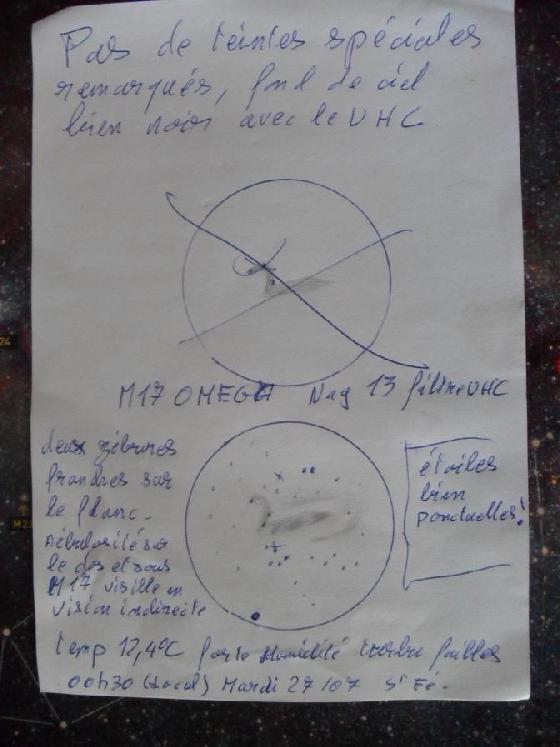 Pas de teintes spéciales
remarqués, fond de ciel
bien noir avec le UHC
M17 OMEGA Nag 13 filtre UHC
deux zébrures
grandes sur
le flanc.
Nébulosité sur
le dos et sous
M17 visille en
vision indirecte
étoiles
bien
ponctuelles!
temp 12,4°C forte Humidité
00h30 (Local) Mardi 27/07 St Fé.
24
M23